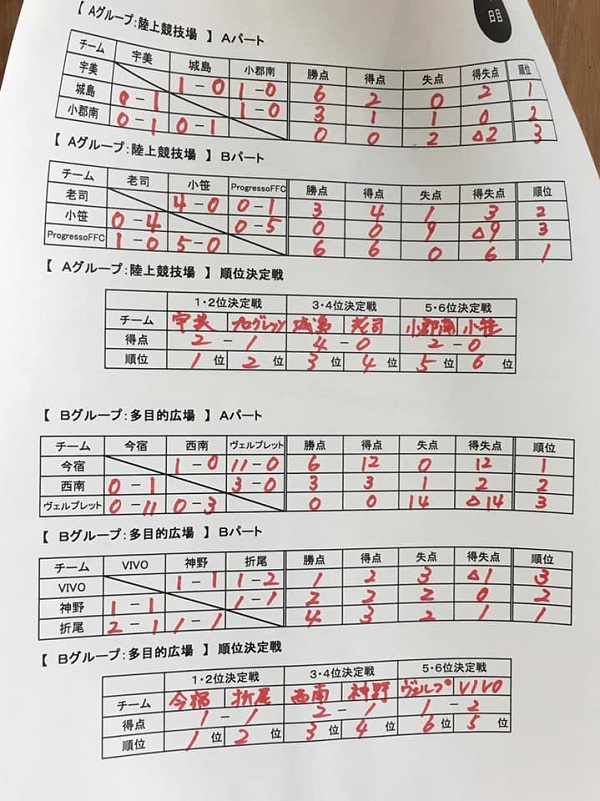 【 Aグループ:陸上競技場 】 Aパート
チーム 宇美 城島 小郡南 勝点 得点 失点 得失点 順位
宇美 1 - 0 1 - 0 6 2 0 2 1
城島 0 - 1 1 - 0 3 1 1 0 2
小郡南 0 - 1 0 - 1 0 0 2 △2 3
【 Aグループ:陸上競技場 】 Bパート
チーム 老司 小笹 ProgressoFFC 勝点 得点 失点 得失点 順位
老司 4 - 0 0 - 1 3 4 1 3 2
小笹 0 - 4 0 - 5 0 0 9 △9 3
ProgressoFFC 1 - 0 5 - 0 6 6 0 6 1
【 Aグループ:陸上競技場 】 順位決定戦
1・2位決定戦 3・4位決定戦 5・6位決定戦
チーム 宇美 プログレッソ 城島 老司 小郡南 小笹
得点 2 - 1 4 - 0 2 - 0
順位 1 位 2 位 3 位 4 位 5 位 6 位
【 Bグループ:多目的広場 】 Aパート
チーム 今宿 西南 ヴェルブレット 勝点 得点 失点 得失点 順位
今宿 1 - 0 11 - 0 6 12 0 12 1
西南 0 - 1 3 - 0 3 3 1 2 2
ヴェルブレット 0 - 11 0 - 3 0 0 14 △14 3
【 Bグループ:多目的広場 】 Bパート
チーム VIVO 神野 折尾 勝点 得点 失点 得失点 順位
VIVO 1 - 1 1 - 2 1 2 3 △1 3
神野 1 - 1 1 - 1 2 2 2 0 2
折尾 2 - 1 1 - 1 4 3 2 1 1
【 Bグループ:多目的広場 】 順位決定戦
1・2位決定戦 3・4位決定戦 5・6位決定戦
チーム 今宿 折尾 西南 神野 ヴェルブ VIVO
得点 1 - 1 2 - 1 1 - 2
順位 1 位 2 位 3 位 4 位 6 位 5 位